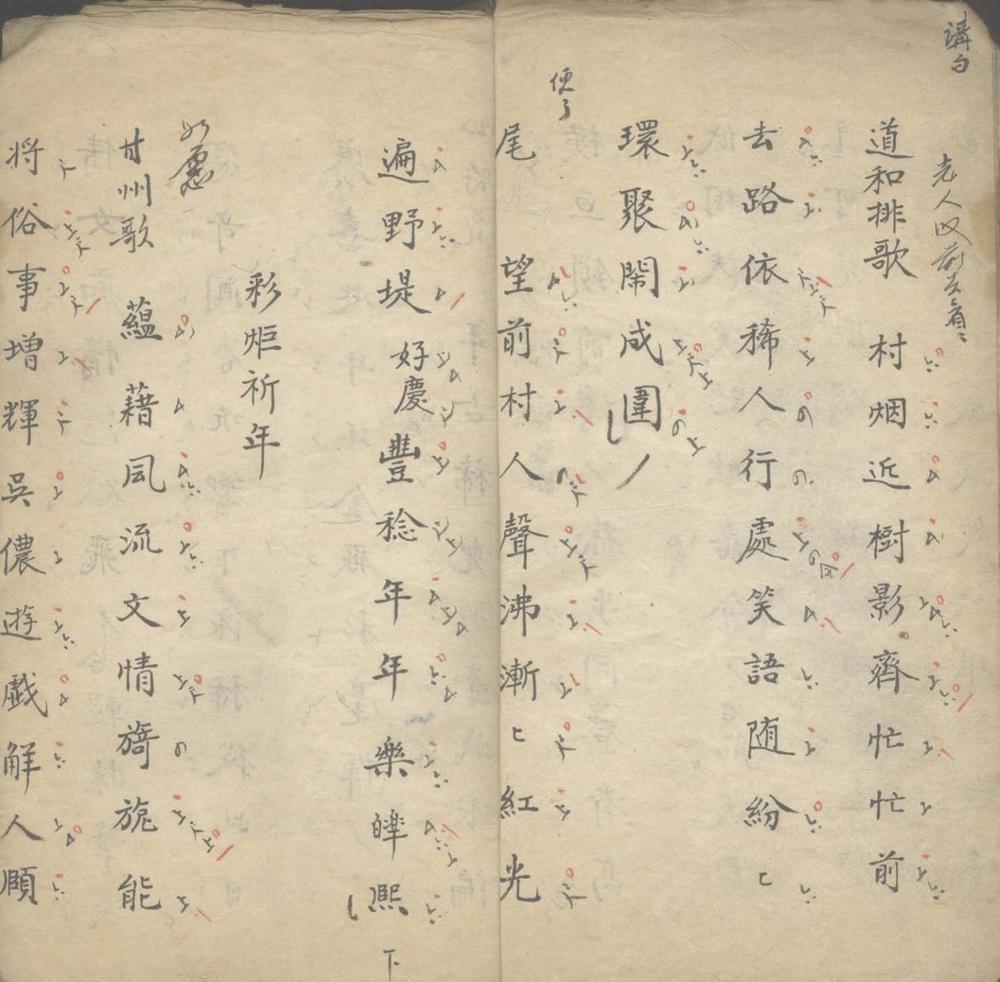 講白
道和排歌 村烟近樹影齊忙忙前
去路依稀人行處笑語随紛〻
環聚閙成圍
便了
尾 望前村人聲沸漸〻紅光
遍野堤好慶豐稔年年樂皡熙
下
彩炬祈年
如愿
甘州歌 蘊藉風流文情旖旎能
将俗事增輝吳儂遊戲解人頤